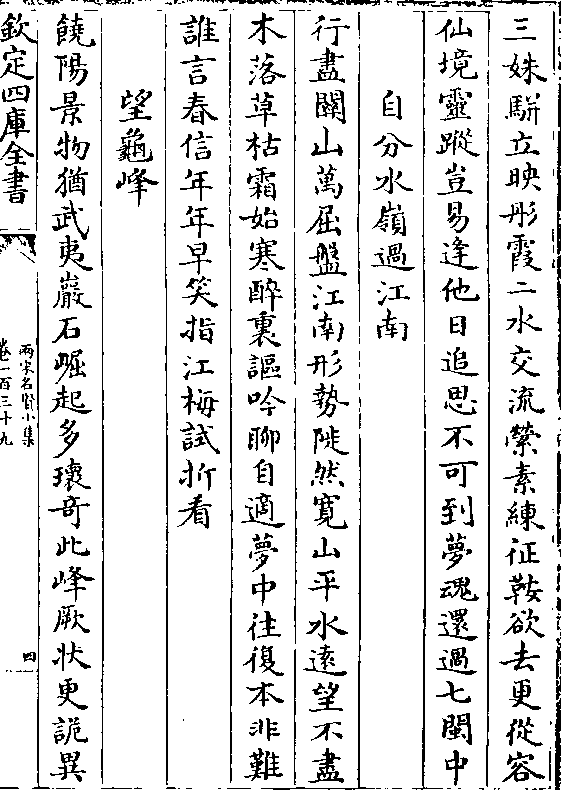 三姝駢立映彤霞二水交流縈素練征鞍欲去更從容
仙境靈蹤豈易逢他日追思不可到夢魂還過七閩中
自分水嶺過江南
行盡關山萬屈盤江南形勢陡然寛山平水遠望不盡
木落草枯霜始寒醉裏謳吟聊自適夢中往復本非難
誰言春信年年早笑指江梅試折看
望龜峰
饒陽景物猶武夷巖石崛起多瓌竒此峰厥状更詭異
欽定四庫全書
兩宋名賢小集
卷一百三十九
四